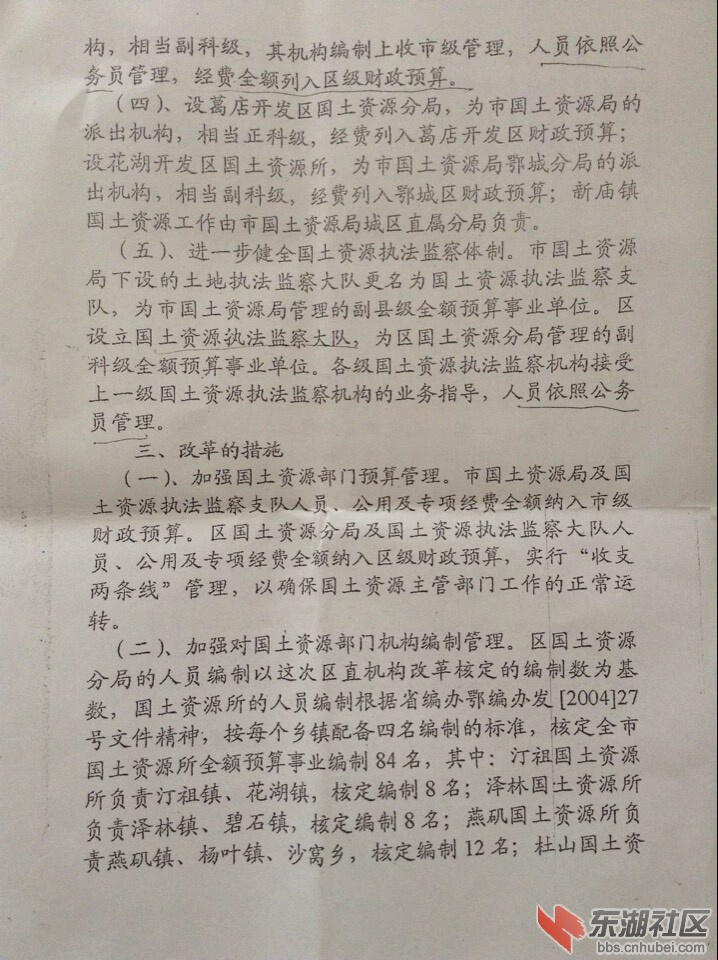 构，相当副科级，其机构编制上收市级管理，人员依照公
务员管理，经费全额列入区级财政预算。
（四）、设葛店开发区国土资源分局，为市国土资源局的
派出机构，相当正科级，经费列入葛店开发区财政预算；
设花湖开发区国土资源所，为市国土资源局鄂城分局的派
出机构，相当副科级，经费列入鄂城区财政预算；新庙镇
国土资源工作由市国土资源局城区直属分局负责。
（五）、进一步健全国土资源执法监察体制。市国土资源
局下设的土地执法监察大队更名为国土资源执法监察支
队，为市国土资源局管理的副县级全额预算事业单位。区
设立国土资源执法监察大队，为区国土资源分局管理的副
科级全额预算事业单位。各级国土资源执法监察机构接受
上一级国土资源执法监察机构的业务指导，人员依照公务
员管理。
三、改革的措施
（一）、加强国土资源部门预算管理。市国土资源局及国
土资源执法监察支队人员、公用及专项经费全额纳入市级
财政预算。区国土资源分局及国土资源执法监察大队人
员、公用及专项经费全额纳入区级财政预算，实行“收支
两条线”管理，以确保国土资源主管部门工作的正常运
转。
（二）、加强对国土资源部门机构编制管理。区国土资源
分局的人员编制以这次区直机构改革核定的编制数为基
数，国土资源所的人员编制根据省编办鄂编办发[2004]27
号文件精神，按每个乡镇配备四名编制的标准，核定全市
国土资源所全额预算事业编制84名，其中：汀祖国土资源
所负责汀祖镇、花湖镇，核定编制8名；泽林国土资源所
负责泽林镇、碧石镇，核定编制8名；燕矶国土资源所负
责燕矶镇、杨叶镇、沙窝乡，核定编制12名；杜山国土资
东湖社区
bbs.cnhubei.com